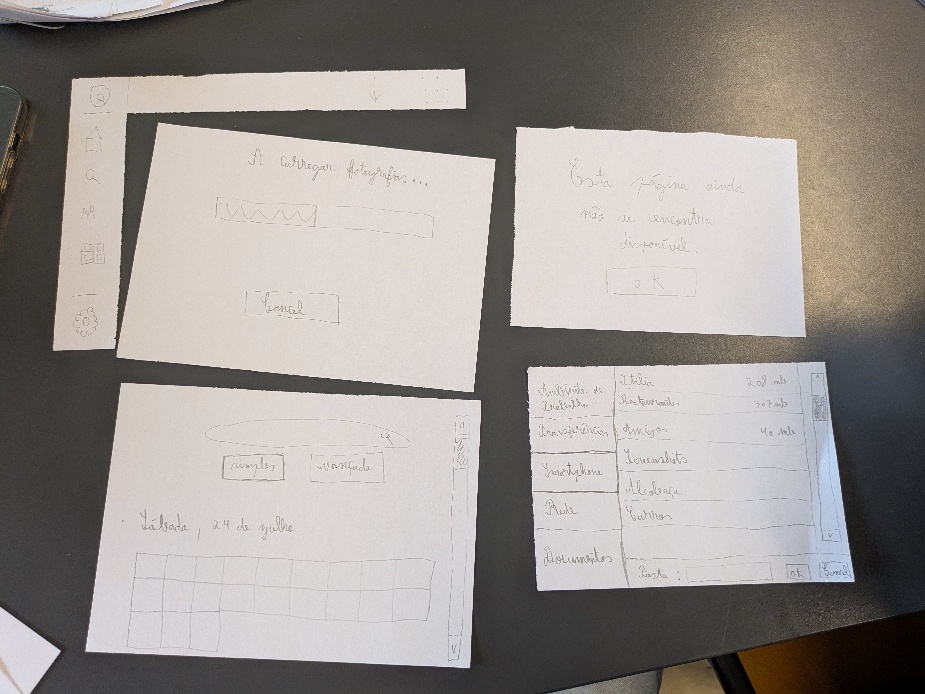 A carregar fotografias...
Cancel
Esta página ainda
não se encontra
disponível.
OK
simples
avançada
Sábado, 24 de julho
Ambiente de
trabalho
Transferências
Smartphone
Rede
Documentos
Itália 208 mb
Restaurantes 307 mb
Amigos 40 mb
Screenshots
Alcobaça
Carros
Pasta :
OK
Cancel